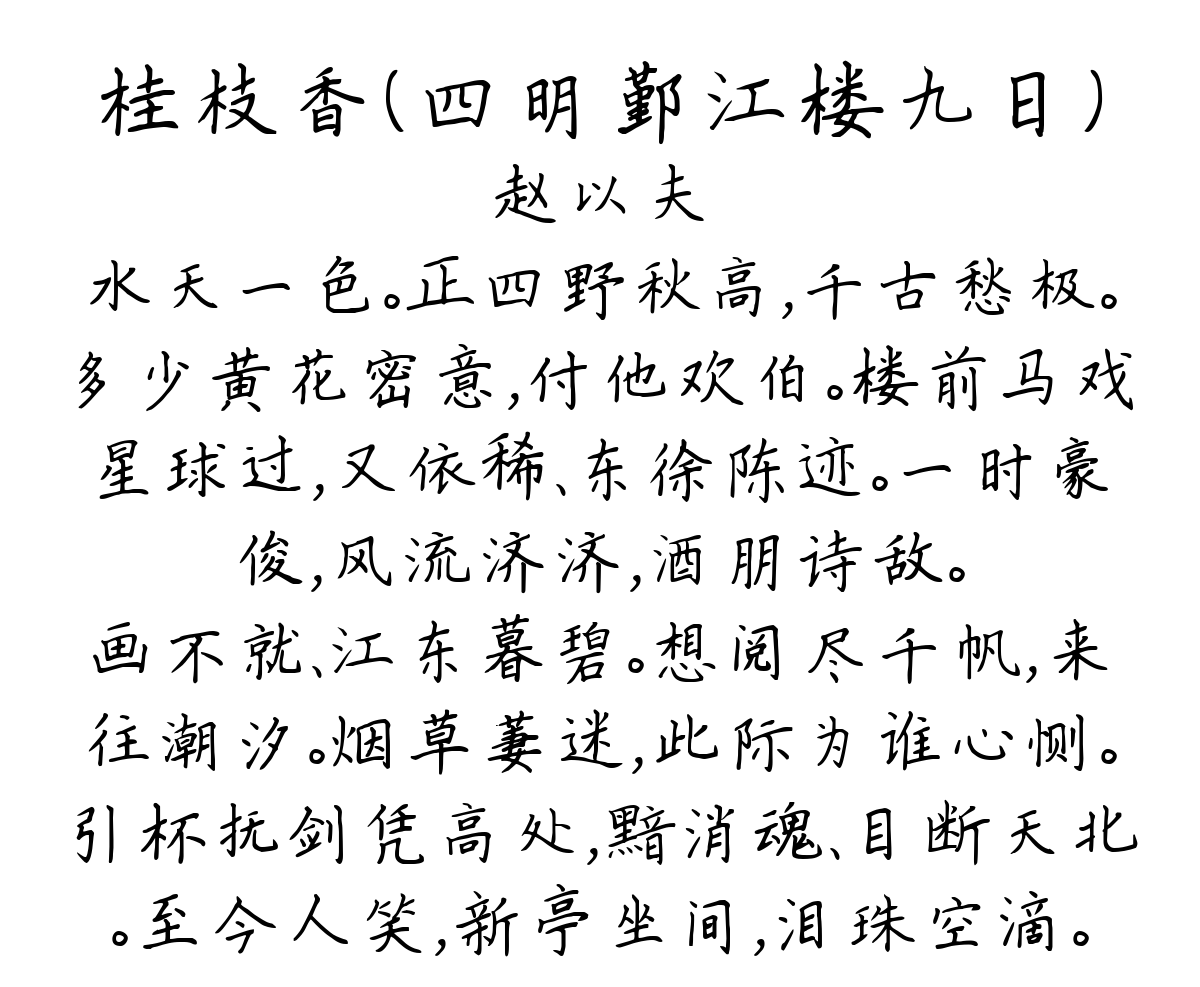 桂枝香(四明鄞江楼九日)
赵以夫
水天一色。正四野秋高,千古愁极。
多少黄花密意,付他欢伯。楼前马戏
星球过,又依稀、东徐陈迹。一时豪
俊,风流济济,酒朋诗敌。
画不就、江东暮碧。想阅尽千帆,来
往潮汐。烟草萋迷,此际为谁心恻。
引杯抚剑凭高处,黯消魂、目断天北
。至今人笑,新亭坐间,泪珠空滴。